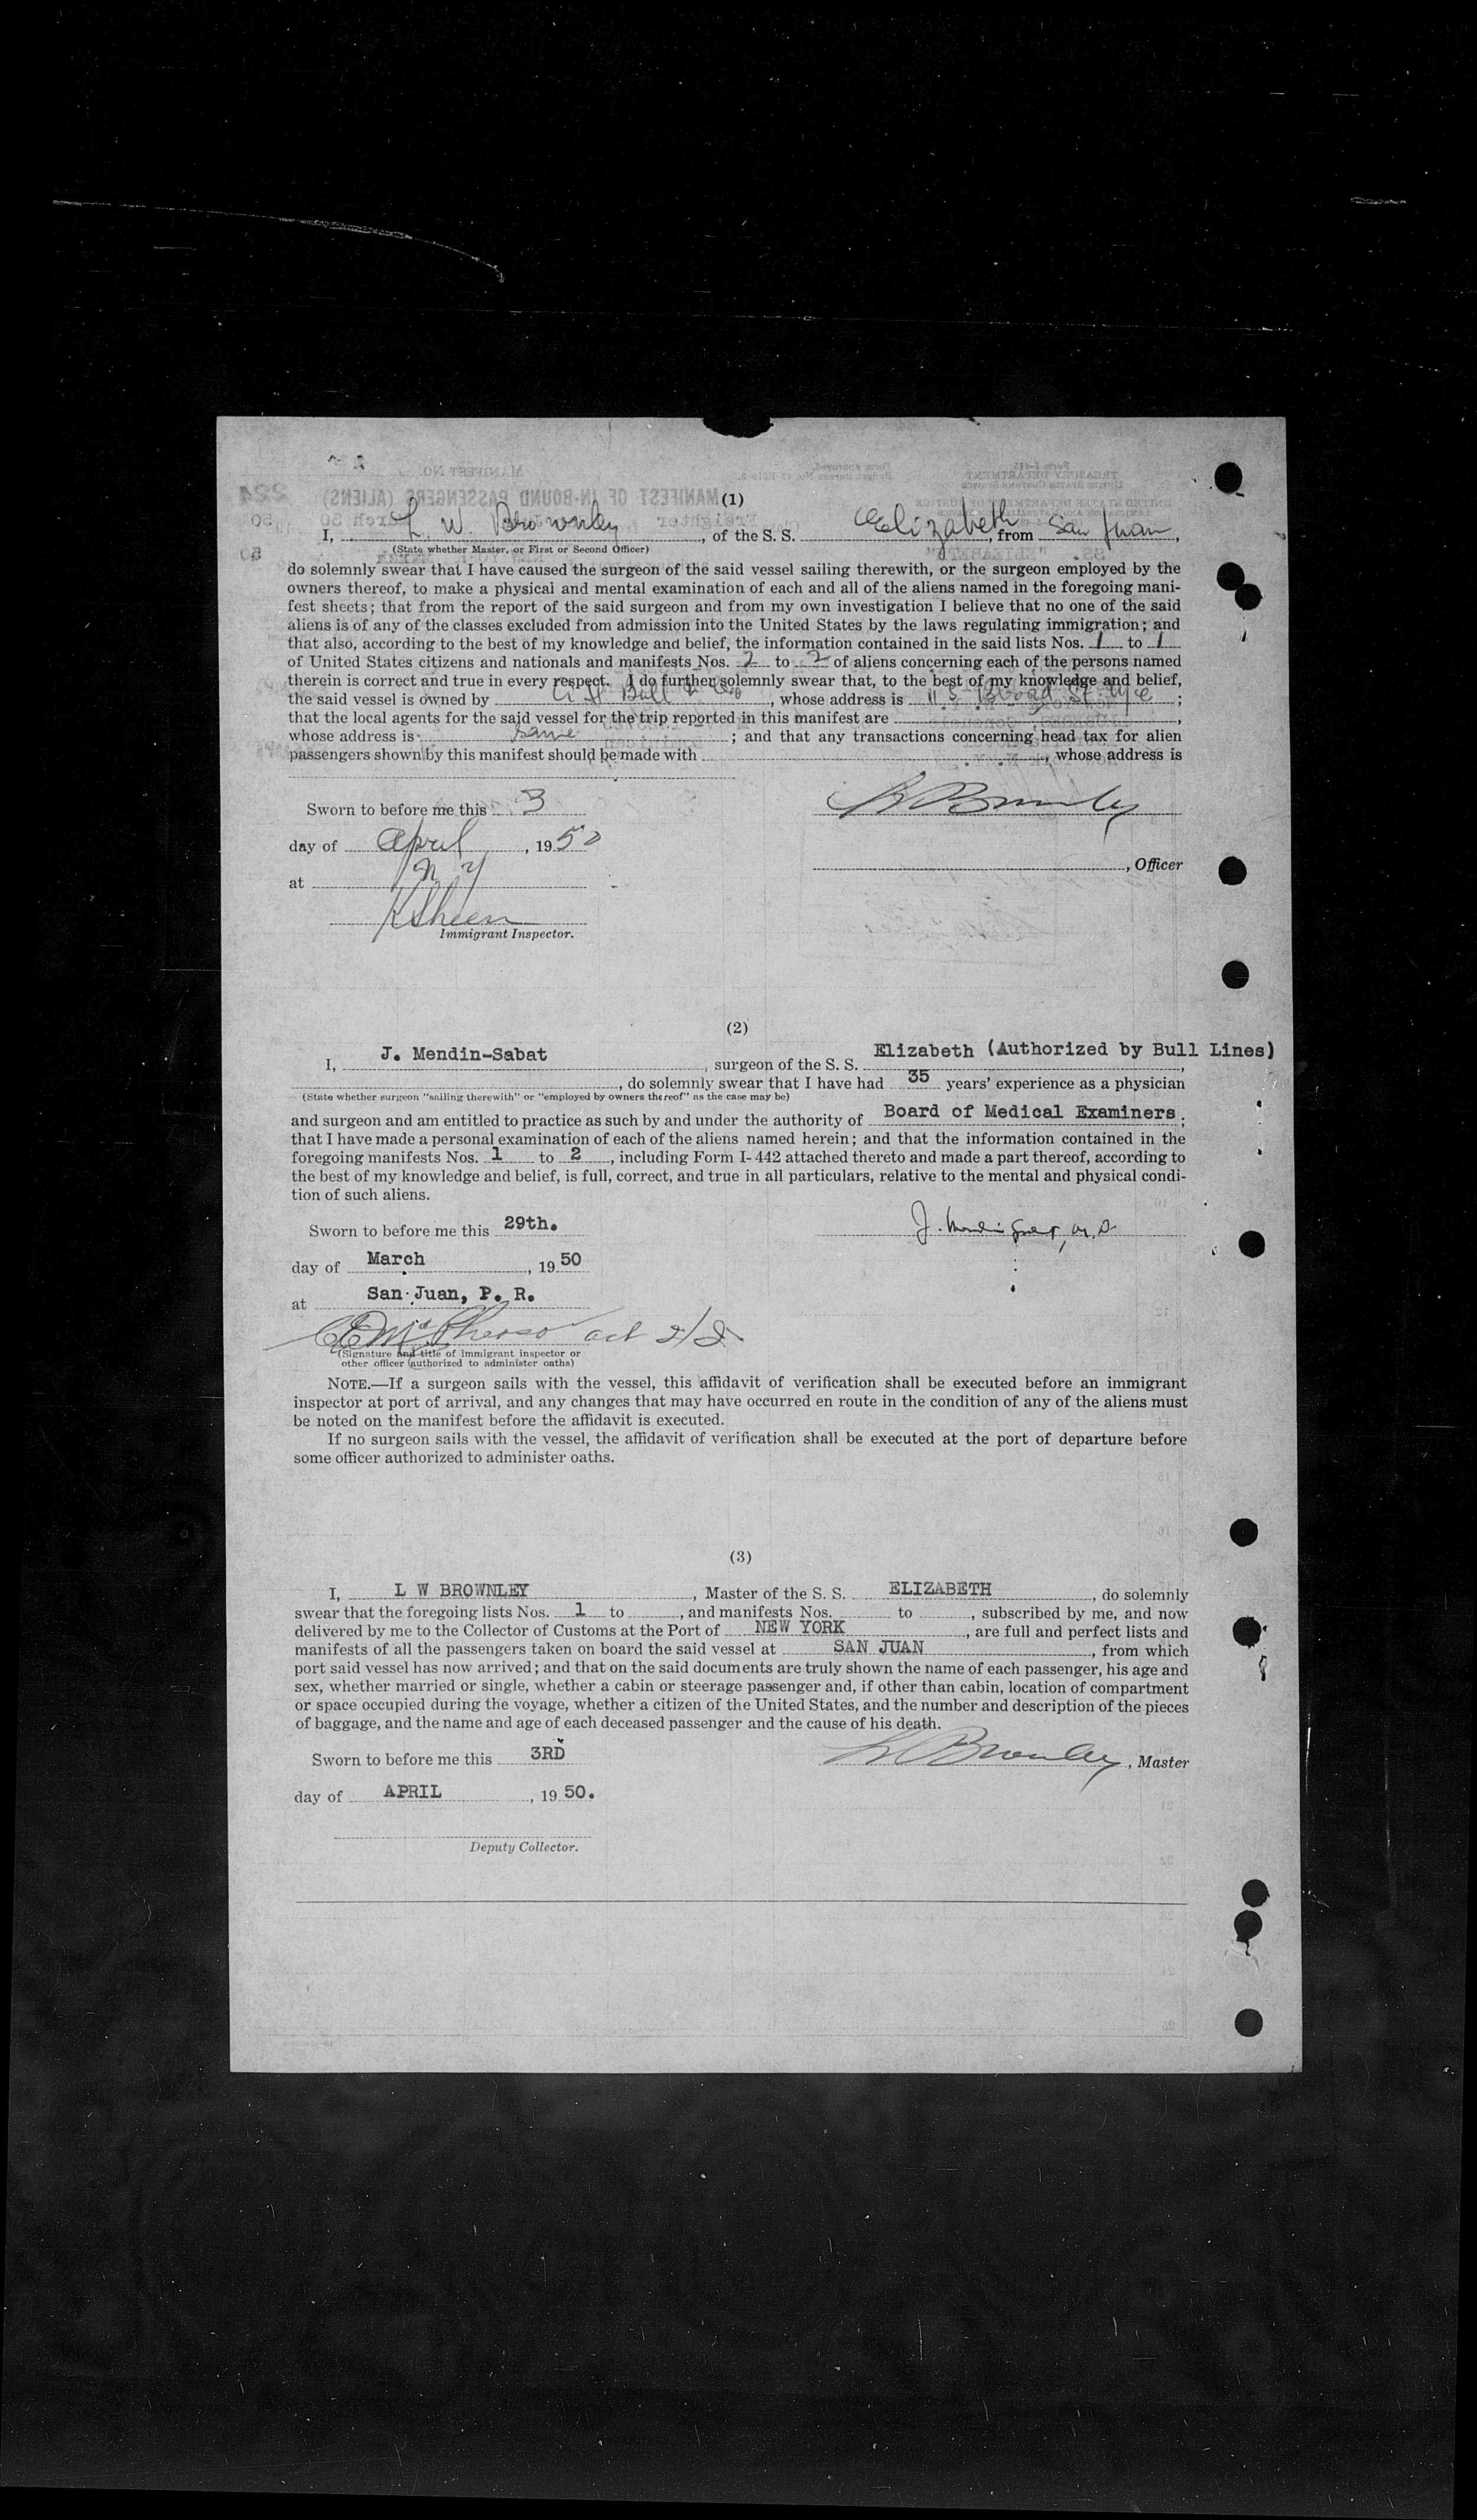 (1)
I, L. W. Brownley, of the S. S. Elizabeth, from San Juan,
(State whether Master, or First or Second Officer)
do solemnly swear that I have caused the surgeon of the said vessel sailing therewith, or the surgeon employed by the
owners thereof, to make a physical and mental examination of each and all of the aliens named in the foregoing mani-
fest sheets; that from the report of the said surgeon and from my own investigation I believe that no one of the said
aliens is of any of the classes excluded from admission into the United States by the laws regulating immigration; and
that also, according to the best of my knowledge and belief, the information contained in the said lists Nos. 1 to 1
of United States citizens and nationals and manifests Nos. 2 to 2 of aliens concerning each of the persons named
therein is correct and true in every respect. I do further solemnly swear that, to the best of my knowledge and belief,
the said vessel is owned by A H Bull & Co, whose address is 115 Broad St. NYC;
that the local agents for the said vessel for the trip reported in this manifest are ,
whose address is same; and that any transactions concerning head tax for alien
passengers shown by this manifest should be made with , whose address is
Sworn to before me this 3
L Brownley
day of April, 1950
, Officer
at N Y
Immigrant Inspector.
(2)
I, J. Mendin-Sabat, surgeon of the S. S. Elizabeth (Authorized by Bull Lines),
, do solemnly swear that I have had 35 years' experience as a physician
(State whether surgeon "sailing therewith" or "employed by owners thereof" as the case may be)
and surgeon and am entitled to practice as such by and under the authority of Board of Medical Examiners;
that I have made a personal examination of each of the aliens named herein; and that the information contained in the
foregoing manifests Nos. 1 to 2, including Form I-442 attached thereto and made a part thereof, according to
the best of my knowledge and belief, is full, correct, and true in all particulars, relative to the mental and physical condi-
tion of such aliens.
Sworn to before me this 29th.
day of March, 1950
at San Juan, P. R.
(Signature and title of immigrant inspector or
other officer authorized to administer oaths)
NOTE.—If a surgeon sails with the vessel, this affidavit of verification shall be executed before an immigrant
inspector at port of arrival, and any changes that may have occurred en route in the condition of any of the aliens must
be noted on the manifest before the affidavit is executed.
If no surgeon sails with the vessel, the affidavit of verification shall be executed at the port of departure before
some officer authorized to administer oaths.
(3)
I, L W BROWNLEY, Master of the S. S. ELIZABETH, do solemnly
swear that the foregoing lists Nos. 1 to , and manifests Nos. to , subscribed by me, and now
delivered by me to the Collector of Customs at the Port of NEW YORK, are full and perfect lists and
manifests of all the passengers taken on board the said vessel at SAN JUAN, from which
port said vessel has now arrived; and that on the said documents are truly shown the name of each passenger, his age and
sex, whether married or single, whether a cabin or steerage passenger and, if other than cabin, location of compartment
or space occupied during the voyage, whether a citizen of the United States, and the number and description of the pieces
of baggage, and the name and age of each deceased passenger and the cause of his death.
Sworn to before me this 3RD
L Brownley, Master
day of APRIL, 1950.
Deputy Collector.